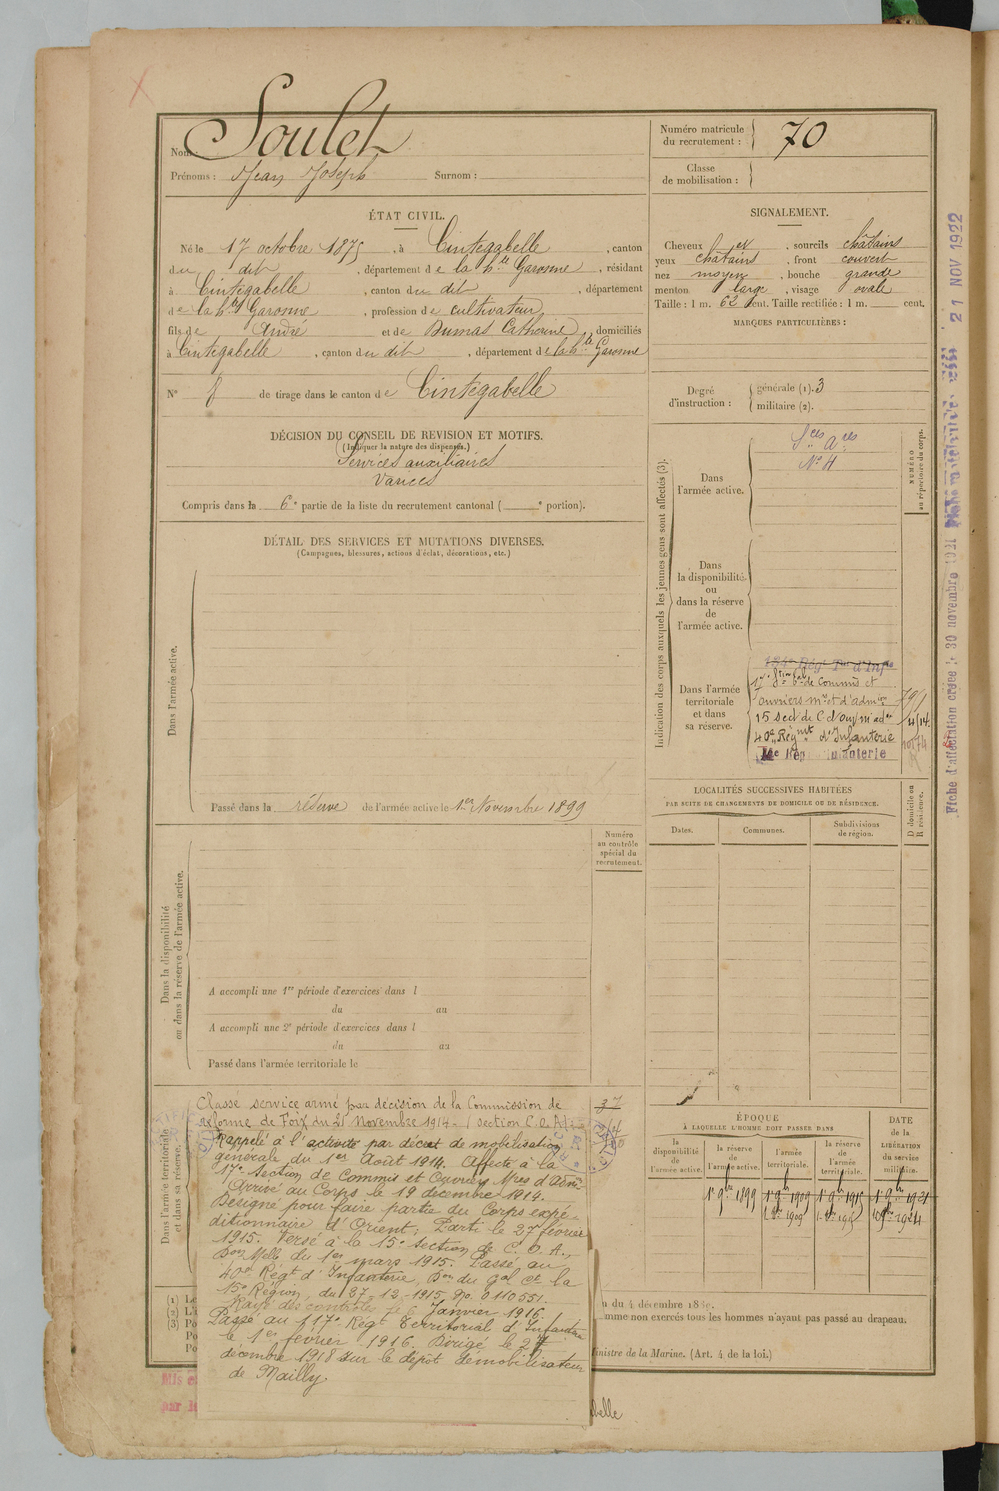 Nom Soulet
Prénoms : Jean Joseph Surnom :
ÉTAT CIVIL.
Né le 17 octobre 1875, à Cintegabelle, canton
du dit, département de la hte Garonne, résidant
à Cintegabelle, canton du dit, département
de la hte Garonne, profession de cultivateur
fils de André et de Dumas Catherine, domiciliés
à Cintegabelle, canton du dit, département de la hte Garonne
N° 8 de tirage dans le canton de Cintegabelle
DÉCISION DU CONSEIL DE REVISION ET MOTIFS.
(Indiquer la nature des dispenses.)
Services auxiliaires
Varices
Compris dans la 6e partie de la liste du recrutement cantonal ( e portion).
DÉTAIL DES SERVICES ET MUTATIONS DIVERSES.
(Campagnes, blessures, actions d'éclat, décorations, etc.)
Dans l'armée active.
Passé dans la réserve de l'armée active le 1er Novembre 1899
Numéro
au contrôle
spécial du
recrutement.
Dans la disponibilité
ou dans la réserve de l'armée active.
A accompli une 1re période d'exercices dans l
du au
A accompli une 2e période d'exercices dans l
du au
Passé dans l'armée territoriale le
Dans l'armée territoriale
et dans sa réserve.
Classé service armé par décision de la Commission de
réforme de Foix du 21 Novembre 1914. section C.O.A.
Rappelé à l'activité par décret de mobilisation
générale du 1er Août 1914. Affecté à la
17e Section de Commis et Ouvriers Mres d'Adm
Arrivé au Corps le 19 décembre 1914.
Désigné pour faire partie du Corps expé-
ditionnaire d'Orient; Parti le 27 février
1915. Versé à la 15e Section de C. O. A.,
Don Melle du 1er mars 1915. Passé au
40e Régt d'Infanterie, Don du Gal Ct la
15e Région, du 27-12-1915 No. 0110551.
Rayé des contrôles le 6 Janvier 1916.
Passé au 117e Régt Territorial d'Infanterie
le 1er février 1916. Dirigé le 27
décembre 1918 sur le dépôt démobilisateur
de Mailly.
37
Numéro matricule
du recrutement : 70
Classe
de mobilisation :
SIGNALEMENT.
Cheveux et, sourcils châtains
yeux châtains, front couvert
nez moyen, bouche grande
menton large, visage ovale
Taille : 1 m. 62 cent. Taille rectifiée : 1 m. cent.
MARQUES PARTICULIÈRES :
Degré
d'instruction :
générale (1). 3
militaire (2).
Indication des corps auxquels les jeunes gens sont affectés (3).
NUMÉRO
au répertoire du corps.
Dans
l'armée active.
Sces Aces
No 4
Dans
la disponibilité
ou
dans la réserve
de
l'armée active.
Dans l'armée
territoriale
et dans
sa réserve.
17e Son tale de Commis et
ouvriers mres et d'admion
15 sect de C d'ouv m adm
40e Régnt d'Infanterie
LOCALITÉS SUCCESSIVES HABITÉES
PAR SUITE DE CHANGEMENTS DE DOMICILE OU DE RÉSIDENCE.
D domicile ou
R résidence.
Dates.
Communes.
Subdivisions
de région.
ÉPOQUE
A LAQUELLE L'HOMME DOIT PASSER DANS
DATE
de la
LIBÉRATION
du service
militaire.
la
disponibilité
de
l'armée active.
la réserve
de
l'armée active.
l'armée
territoriale.
la réserve
de
l'armée
territoriale.
1er 9bre 1899 1er 9bre 1909 1er 9bre 1915 1er 9bre 1921
u du 4 décembre 18
mme non exercés tous les hommes n'ayant pas passé au drapeau.
inistre de la Marine. (Art. 4 de la loi.)
Mis e
par l
abelle
Fiche d'affectation créée le 30 novembre 1921
21 NOV 1922